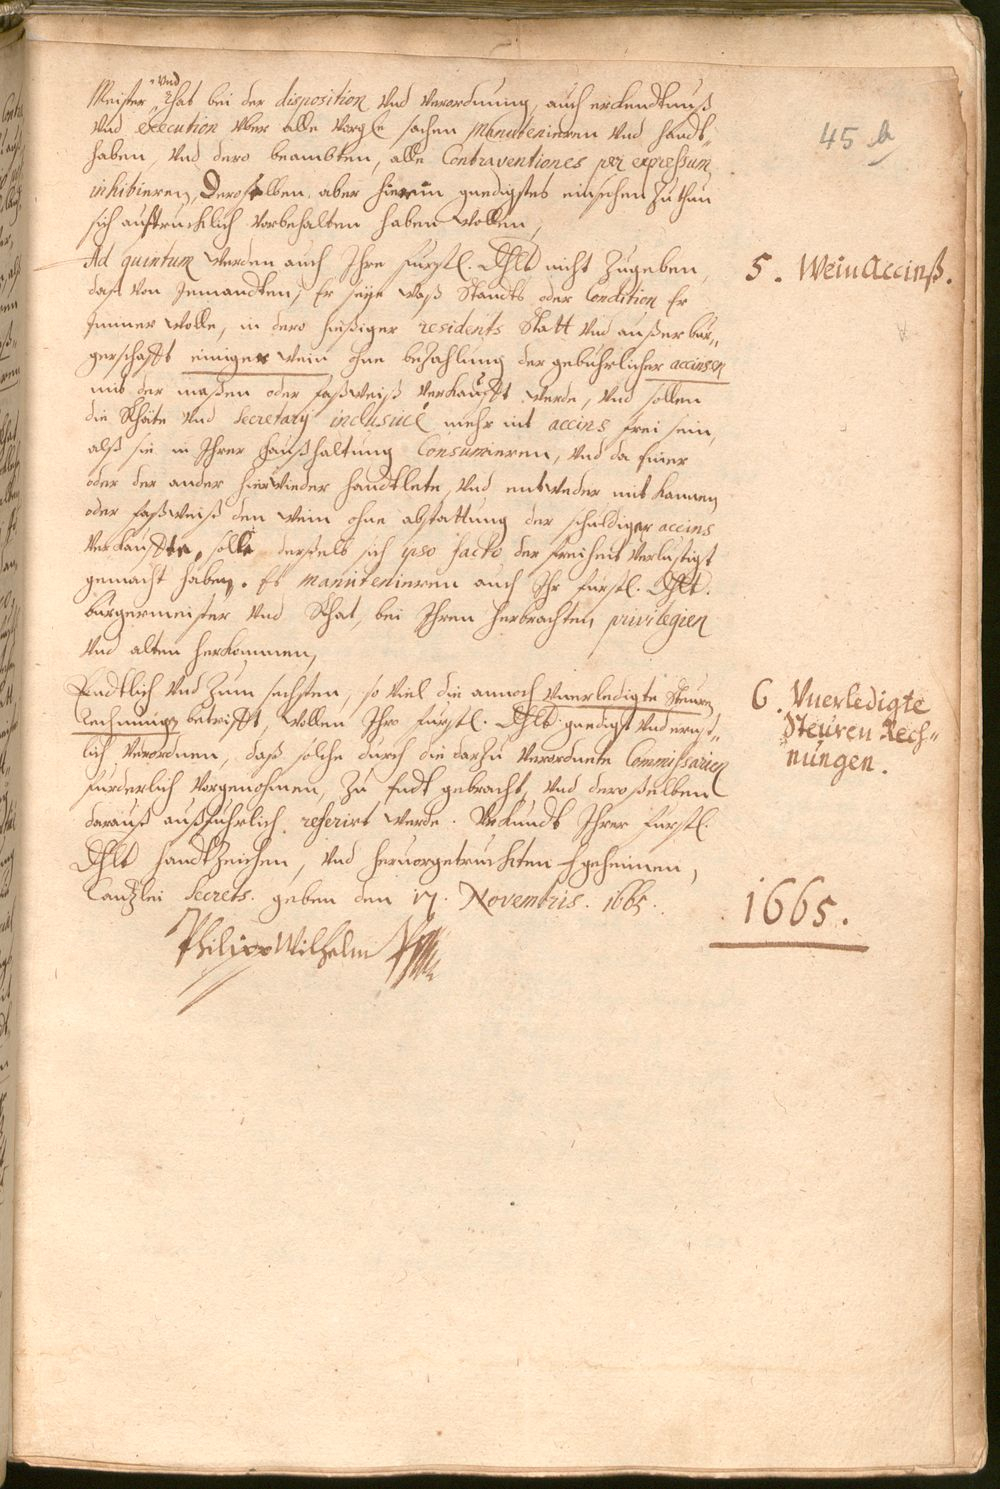 45 b
und
Meister Rhat bei der disposition und verordnung, auch erkendtnuß
und execution uber alle vorgle sachen manutenieren und handt-
haben, und dero beambten, alle Contraventiones per expressum
inhibieren, Deroselben aber hierein gnedigstes einsehen zu thun
sich außtrucklich vorbehalten haben wollen,
Ad quintum werden auch Ihre Fürstl. Dhlt nicht zugeben,
daß von Jemandten, Er seye waß Standts oder Condition Er
immer wolle, in dero hießiger residents Statt und außerbür„
gerschafft einiger wein ohne bezahlung der gebührlicher accinsen
mit der maßen oder faßweiß verkaufft werde, und sollen
die Rhäte und Secretarij inclusivè mehr nit accins frei sein,
alß sie in Ihrer haußhaltung Consumieren, und da Einer
oder der ander hierwieder handtlete, und entweder mit kannen
oder faßweiß den wein ohne abstattung der schuldiger accins
verkauffte, solle derselb sich ipso facto der freiheit verlustigt
gemacht haben. Es manutenieren auch Ihr fürstl. Dhlt.
bürgermeister und Rhat, bei Ihren herbrachten privilegien
und alten herkommen,
Endtlich und zum sechsten, so viel die annoch unerledigte Steuren
Rechnungen betrifft, wollen Ihro fürstl. Dhlt. gnedigst und ernst„
lich verordnen, daß solche durch die darzu verordnete Commissarien
furderlich vorgenohmen, zu Endt gebracht, und deroselben
darauß außführlich referirt werde. Urkundt Ihrer fürstl.
Dhlt handtzeichen, und hervorgetruckten geheimen,
Canzlei Secrets. geben den 17. Novembris. 1665.
Philipp Wilhelm
5. Wein Accinß.
6. Unerledigte
Steuren Rech„
nungen.
1665.